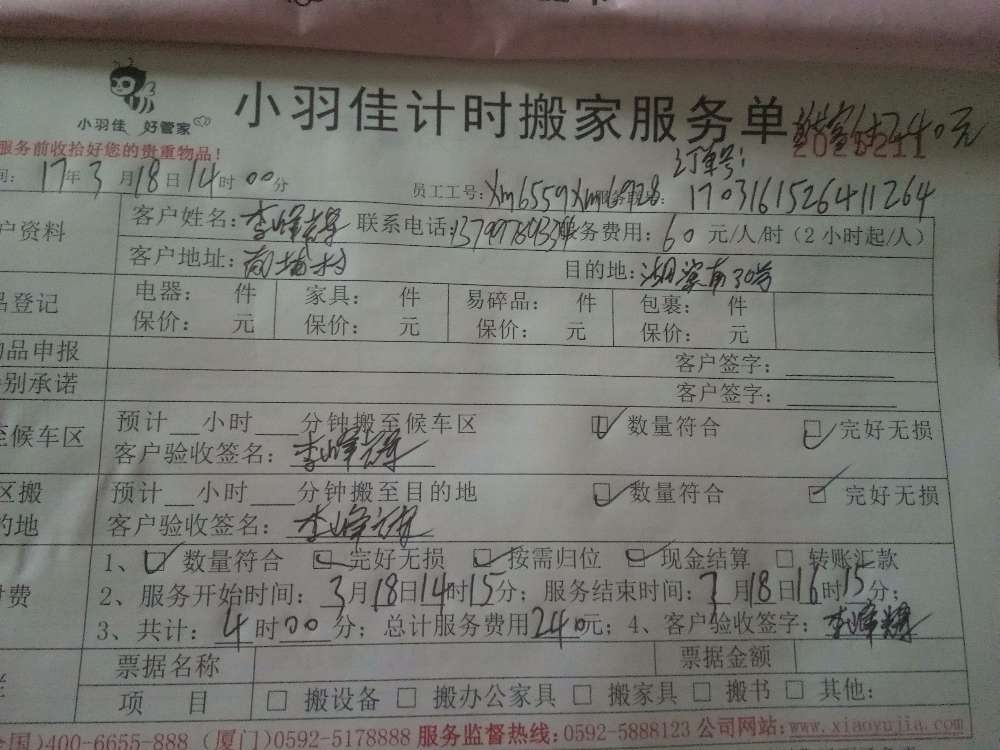 小羽佳 好管家
小羽佳计时搬家服务单
240元
2026211
服务前收拾好您的贵重物品！
订单号：
间：17年3月18日14时00分
员工工号：Xm6559
17031615264411264
户资料
客户姓名：李峰 联系电话： 务费用：60元/人/时（2小时起/人）
客户地址： 村 目的地：湖 南30号
品登记
电器： 件 家具： 件 易碎品： 件 包裹： 件
保价： 元 保价： 元 保价： 元 保价： 元
物品申报 客户签字：
别承诺 客户签字：
至候车区
预计 小时 分钟搬至候车区 数量符合 完好无损
客户验收签名：李峰
区搬
预计 小时 分钟搬至目的地 数量符合 完好无损
的地
客户验收签名：李峰
1、 数量符合 完好无损 按需归位 现金结算 转账汇款
付费
2、服务开始时间：3月18日14时15分；服务结束时间： 月18日16时15分；
3、共计：4时00分；总计服务费用240元；4、客户验收签字：李峰
票据名称 票据金额
项 目 搬设备 搬办公家具 搬家具 搬书 其他：
全国）400-6655-888（厦门）0592-5178888 服务监督热线：0592-5888123 公司网站：www.xiaoyujia.com